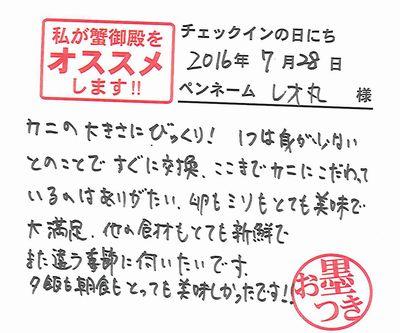 私が蟹御殿を
オススメ
します!!
チェックインの日にち
2016年 7月28日
ペンネーム レオ丸 様
カニの大きさにびっくり! 1つは身が少ない
とのことですぐに交換、ここまでカニにこだわって
いるのはありがたい、卵もミソもとても美味で
大満足、他の食材もとても新鮮で
また違う季節に伺いたいです。
夕飯も朝食もとっても美味しかったです!!
お墨
つき